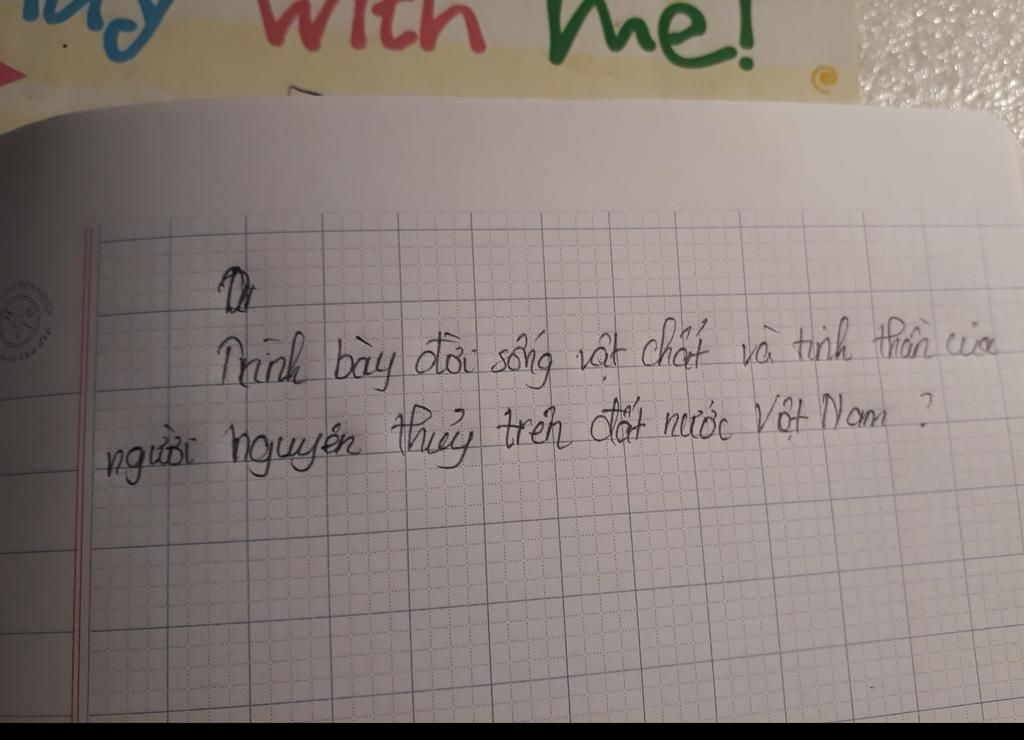 with me!
Trình bày đời sống vật chất và tinh thần của
người nguyên thủy trên đất nước Việt Nam ?